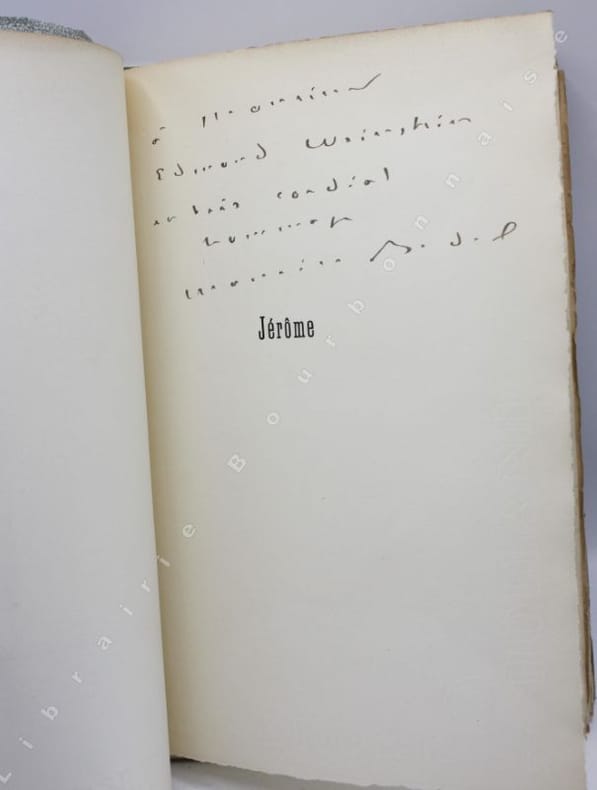 à Monsieur
Edmond Weinstein
en très cordial
hommage
Maurice Bedel
Jérôme
Librairie Bourbonnaise